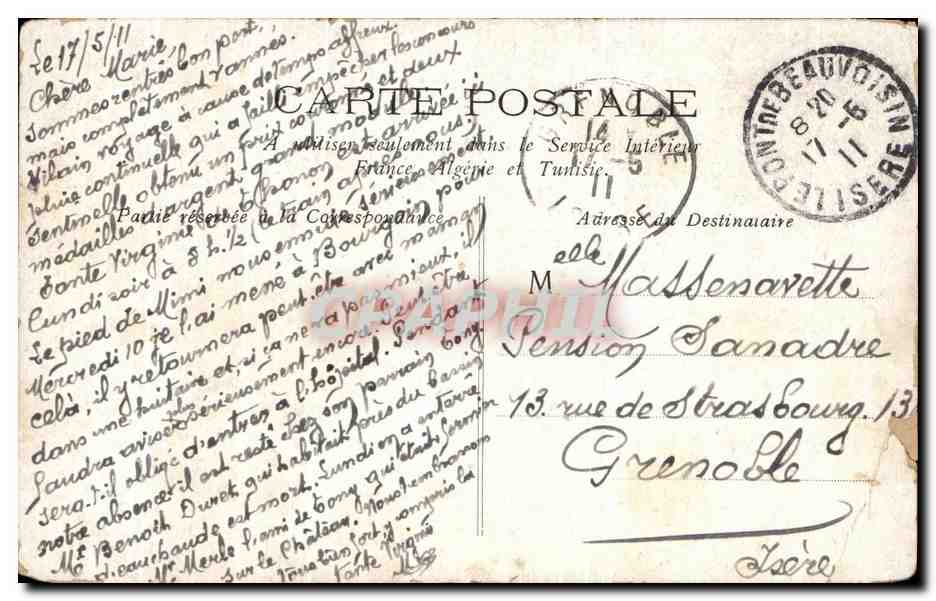 Le 17/5/11
Chère Marie,
Sommes rentrés bon port,
mais complètement vannés.
Vilain voyage à cause de temps affreux
pluie continuelle qui a failli empêcher le concours
Sentinelle a obtenu un prix
médailles argent grand mod. et deux
Tante Virginie et arrivée
Lundi soir à 8 h. 1/2 (le train après nous)
Le pied de Mimi nous ennui sérieus
Mercredi 10 je l'ai mené à Bourgoin pour
celà, il y retournera peut-être avec maman
dans une huitaine et si ça ne va pas mieux, il
faudra aviser plus sérieusement encore. Peut-être
sera-t-il obligé d'entrer à l'hôpital. Pendant
notre absence il est resté chez son parrain Tony
Mr Benoît Duret qui habitait près du bassin
d'eau chaude est mort. Lundi on a enterré
Mr Merle l'ami de Tony qui était fermier
sur le Château. Nous t'embrassons
tous bien fort y compris la
tante Virginie
CARTE POSTALE
A utiliser seulement dans le Service Intérieur
France, Algérie et Tunisie.
Partie réservée à la Correspondance
Adresse du Destinataire
LE PONT DE BEAUVOISIN
ISERE
8 20
17 - 5
11
GRENOBLE
ISERE
14
- 5
11
M elle Massenavette
Pension Sanadre
13. rue de Strasbourg. 13
Grenoble
Isère
CARAPHIL